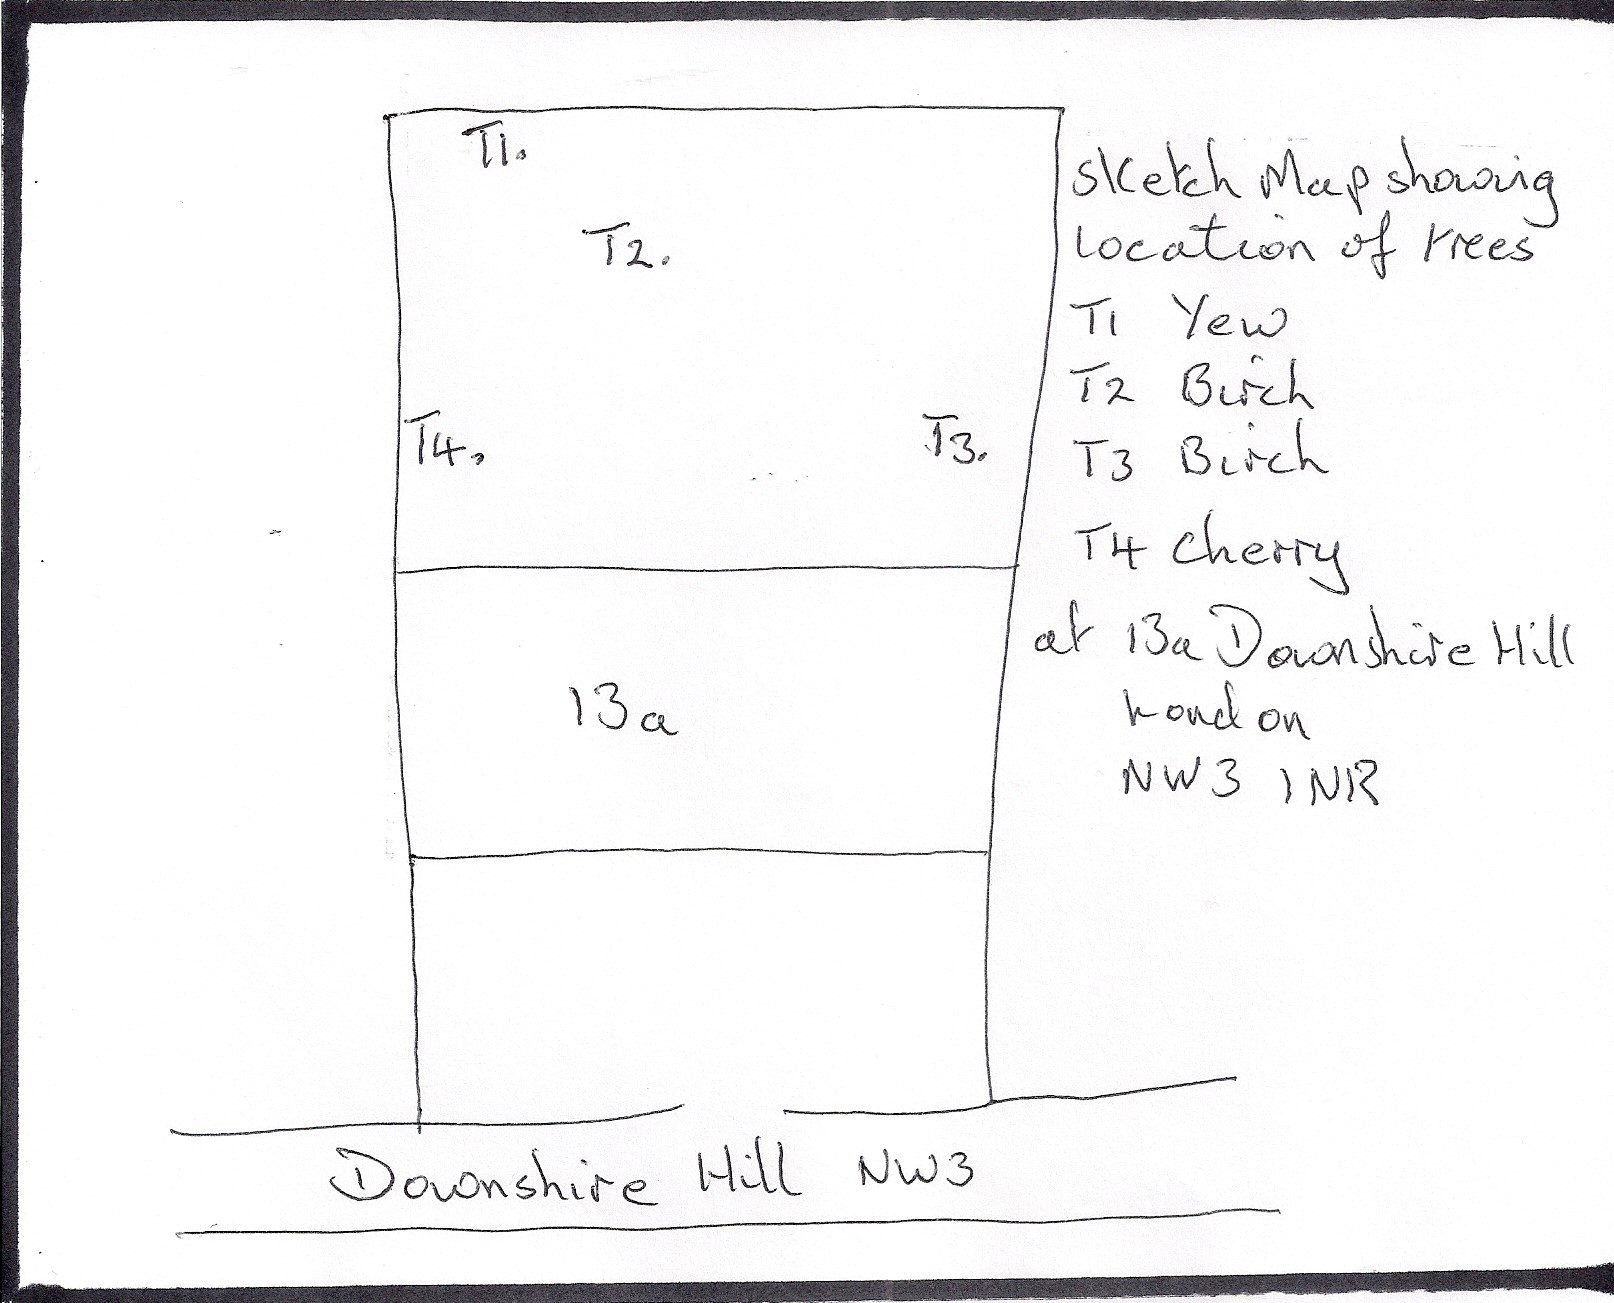 T1.
T2.
T4.
T3.
13a
Sketch Map showing
Location of trees
T1 Yew
T2 Birch
T3 Birch
T4 Cherry
at 13a Downshire Hill
London
NW3 1NR
Downshire Hill NW3